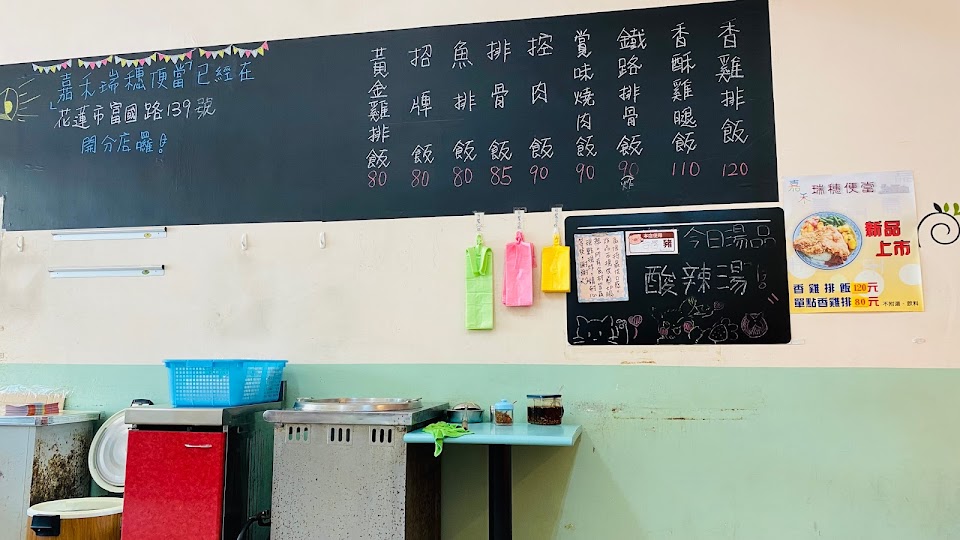 嘉禾瑞穗便當已經在
花蓮市富國路139號
開分店囉!
黃金雞排飯 80
招牌飯 80
魚排飯 80
排骨飯 85
控肉飯 90
賞味燒肉飯 90
鐵路排骨飯 90
炸
香酥雞腿飯 110
香雞排飯 120
今日湯品
酸辣湯
豬
嘉禾 瑞穗便當
新品
上市
香雞排飯 120元
單點香雞排 80元 不附湯、飲料